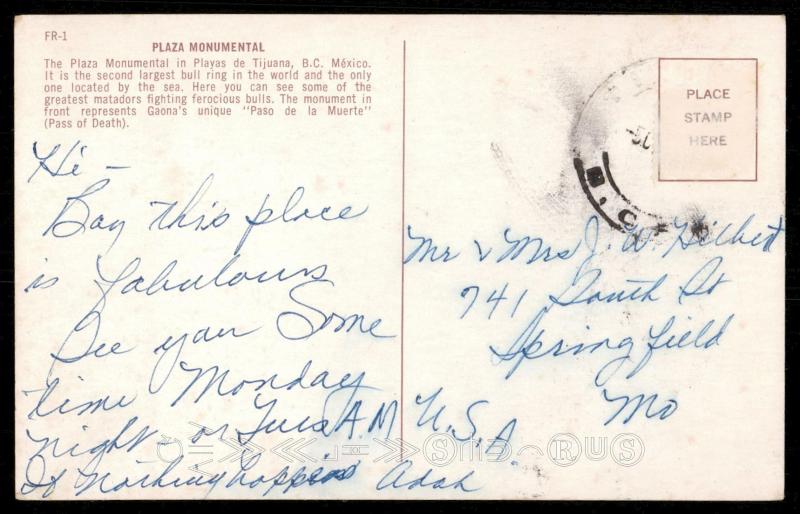 FR-1
PLAZA MONUMENTAL
The Plaza Monumental in Playas de Tijuana, B.C. México.
It is the second largest bull ring in the world and the only
one located by the sea. Here you can see some of the
greatest matadors fighting ferocious bulls. The monument in
front represents Gaona's unique "Paso de la Muerte"
(Pass of Death).
Hi –
Boy this place
is fabulous
See you Some
time Monday
night or Tues A.M
If nothing happens Adah
PLACE
STAMP
HERE
Mr & Mrs J. W. Hilbert
741 South St
Springfield
Mo
U.S.A